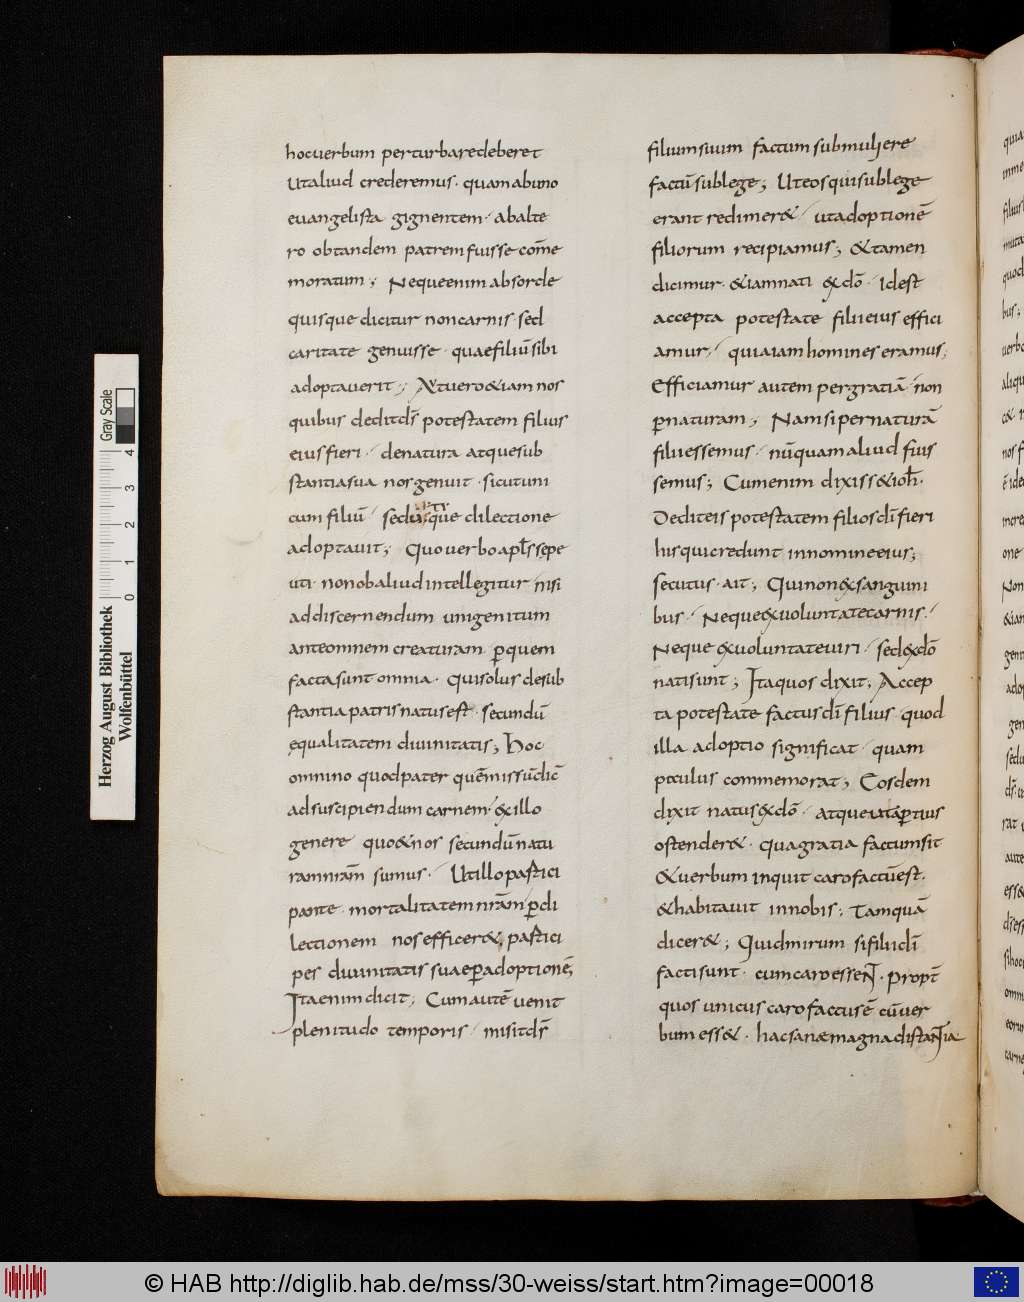 hocuerbum perturbaredeberet
Utaliud crederemus · quamabuno
euangelista gignentem · abalte
ro obtandem patremfuisse com̄e
moratum ; Nequeenim absorde
quisque dicitur noncarnis · sed
caritate genuisse · quaefiliū sibi
adoptauerit ; Atuero&iam nos
quibus deditd̄s potestatem filius
eius fieri · denatura atquesub
stantiasua nosgenuit · sicutuni
cum filiū · sed utique dilectione
adoptauit ; Quouerbo apl̄s sepe
uti · nonobaliud intellegitur nisi
addiscernendum unigenitum
anteomnem creaturam ꝑquem
factasunt omnia · Quisolus desub
stantia patris natusest · secundū
ęqualitatem diuinitatis ; Hoc
omnino quodpater quēmissū dic̄
adsuscipiendum carnem · &exillo
genere quo&nos secundū natu
ram nr̄am sumus · Utillo partici
pante · mortalitatem nr̄am ꝑdi
lectionem nos efficer& partici
pes diuinitatis suaeꝑadoptionē ;
Itaenim dicit ; Cumautē uenit
plenitudo temporis · misitd̄s
filiumsuum factum submuliere
factū sublege ; Uteos quisublege
erant redimer& · utadoptionē
filiorum recipiamus ; &tamen
dicimur · &iamnati exdō · Idest
accepta potestate filii eius effici
amur · quiaiam homines eramus ;
Efficiamur autem pergratiā · non
ꝑnaturam ; Nam si pernaturā
filii essemus · nūquam aliud fuis
semus ; Cumenim dixiss& ioh̄ ·
Dediteis potestatem filios dī fieri
hisqui credunt innomine eius ;
secutus · ait ; Quinon exsanguini
bus · Neque exuoluntatecarnis ·
Neque exuoluntate uiri · sed exdō
natisunt ; Itaquos dixit ; Accep
ta potestate factus dī filius · quod
illa adoptio significat · quam
paulus commemorat ; Eosdem
dixit natus exdō · atque utaꝑtius
ostender& · quagratia factumsit
&uerbum inquit caro factū est ·
&habitauit innobis ; Tamquā
dicer& ; Quidmirum si filii dī
facti sunt · cumcaro essent · Propt̄
quos unicus caro factus ē cūuer
bum ess& · hac sane magna distantia
Herzog August Bibliothek
Wolfenbüttel
Gray Scale
0 1 2 3 4
© HAB http://diglib.hab.de/mss/30-weiss/start.htm?image=00018